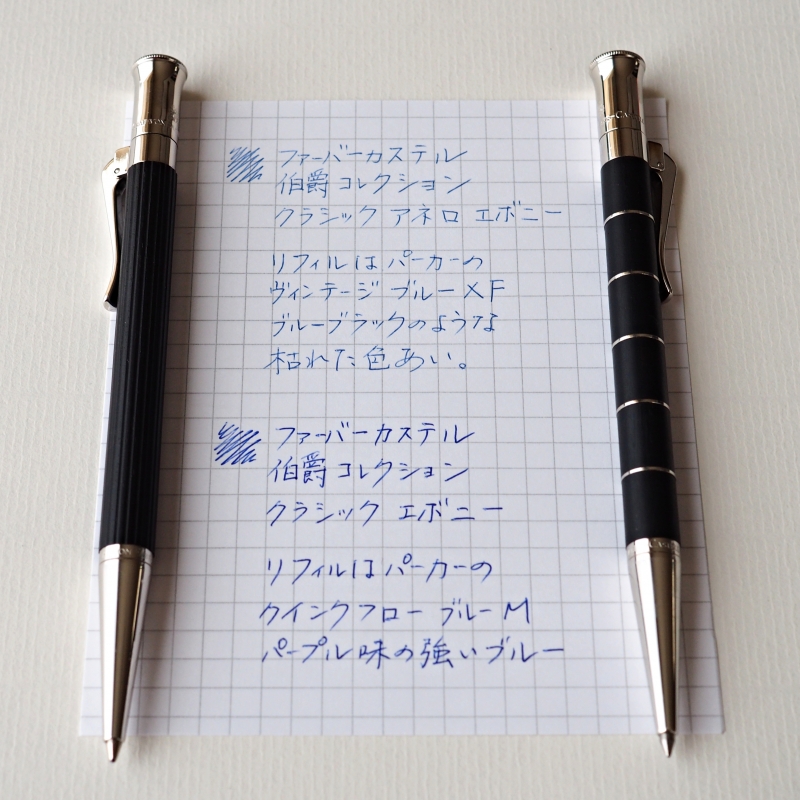 ファーバーカステル
伯爵コレクション
クラシック アネロ エボニー
リフィルは パーカーの
ヴィンテージ ブルー XF
ブルーブラックのような
枯れた色あい。
ファーバーカステル
伯爵コレクション
クラシック エボニー
リフィルはパーカーの
クインクフロー ブルー M
パープル味の強いブルー